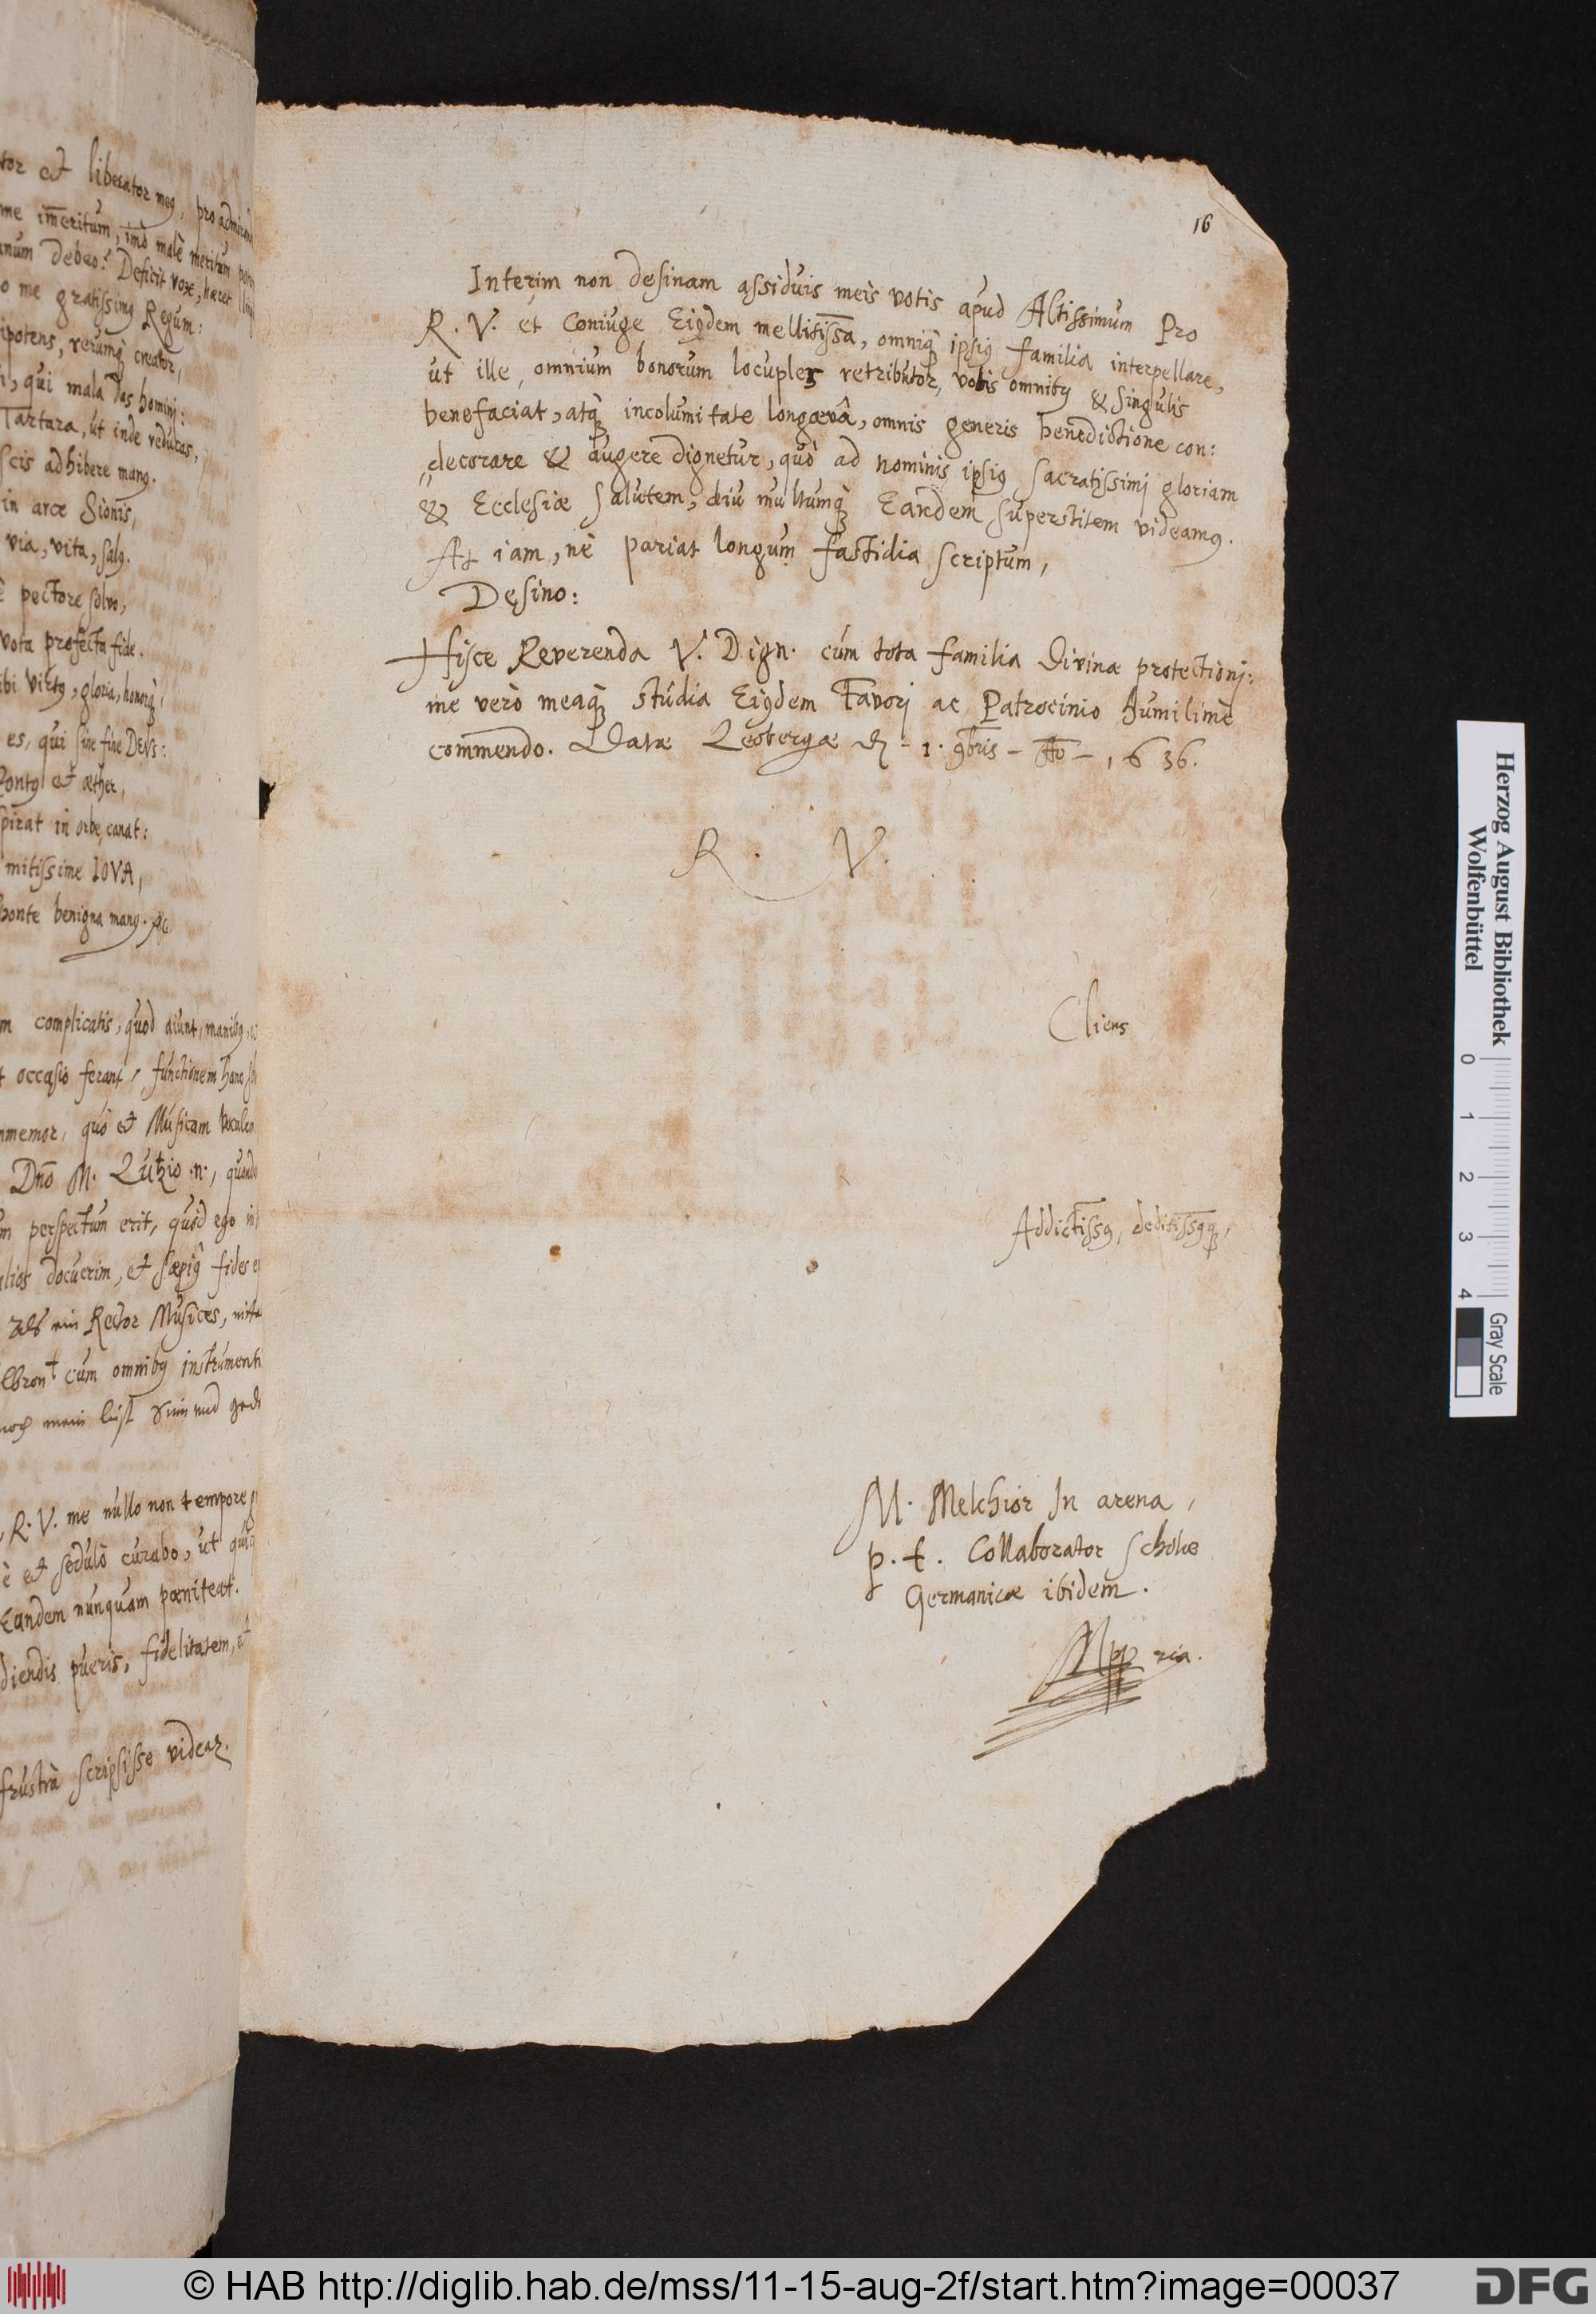 tor et liberator meꝰ, pro admirand
me im̅eritum, imò malè meritum
anum debeo? Deficit vox, hæret
o me gratissimꝰ Regum:
ipotens, rerumq́ creator,
qui mala das homini:
Tartara, ut inde reducas,
scis adhibere manꝰ.
in arce Sionis,
via, vita, salꝰ.
è pectore solvo,
vota profecta fide.
ibi virtꝰ, gloria, honorq́,
es, qui sine fine DEVS:
Pontꝰ et æther,
spirat in orbe, canat:
mitissime IOVA,
sponte benigna manꝰ. &c
m complicatis, quod aiunt, manibꝰ,
t occasio ferant, functionem hanc
memor, quò et Musicam
Dn̅o M. Lutzio .n., quonda
m perspectum erit, quòd ego in
alios docuerim, et sæpiꝰ fides
als ein Rector Musices,
cum omnibꝰ instrumenti
noch mein lust
R. V. me nullo non tempore
è et sedulò curabo, ut
Eandem nunquam pœniteat.
diendis pueris, fidelitatem,
frustrà scripsisse videar.
16
Interim non desinam assiduis meis votis apud Altissimum pro
R. V. et Coniuge Eiꝰdem mellitiss̅a, omniq́ ipsiꝰ familia interpellare,
ut ille, omnium bonorum locuples retributor, vobis omnibꝰ & singulis
benefaciat, atq́ incolumitate longævâ, omnis generis benedictione con:
„decorare & augere dignetur, quò ad nominis ipsiꝰ sacratissimi gloriam
& Ecclesiæ salutem, diu multumq́ Eandem superstitem videamꝰ.
At iam, nè pariat longum fastidia scriptum,
Desino:
Hisce Reverenda V. Dign. cum tota familia divinæ protectioni:
me verò meaq́ studia Eiꝰdem Favori ac Patrocinio humilimè
commendo. Datæ Leobergæ d. - 1. 9bris - A̅o - 1636.
R. V.
Cliens
Addictissꝰ, deditissꝰq́,
M. Melchior In arena,
p. t. Collaborator Scholæ
Germanicæ ibidem.
Mpp ria.
Herzog August Bibliothek
Wolfenbüttel
0 1 2 3 4
Gray Scale
© HAB http://diglib.hab.de/mss/11-15-aug-2f/start.htm?image=00037
DFG